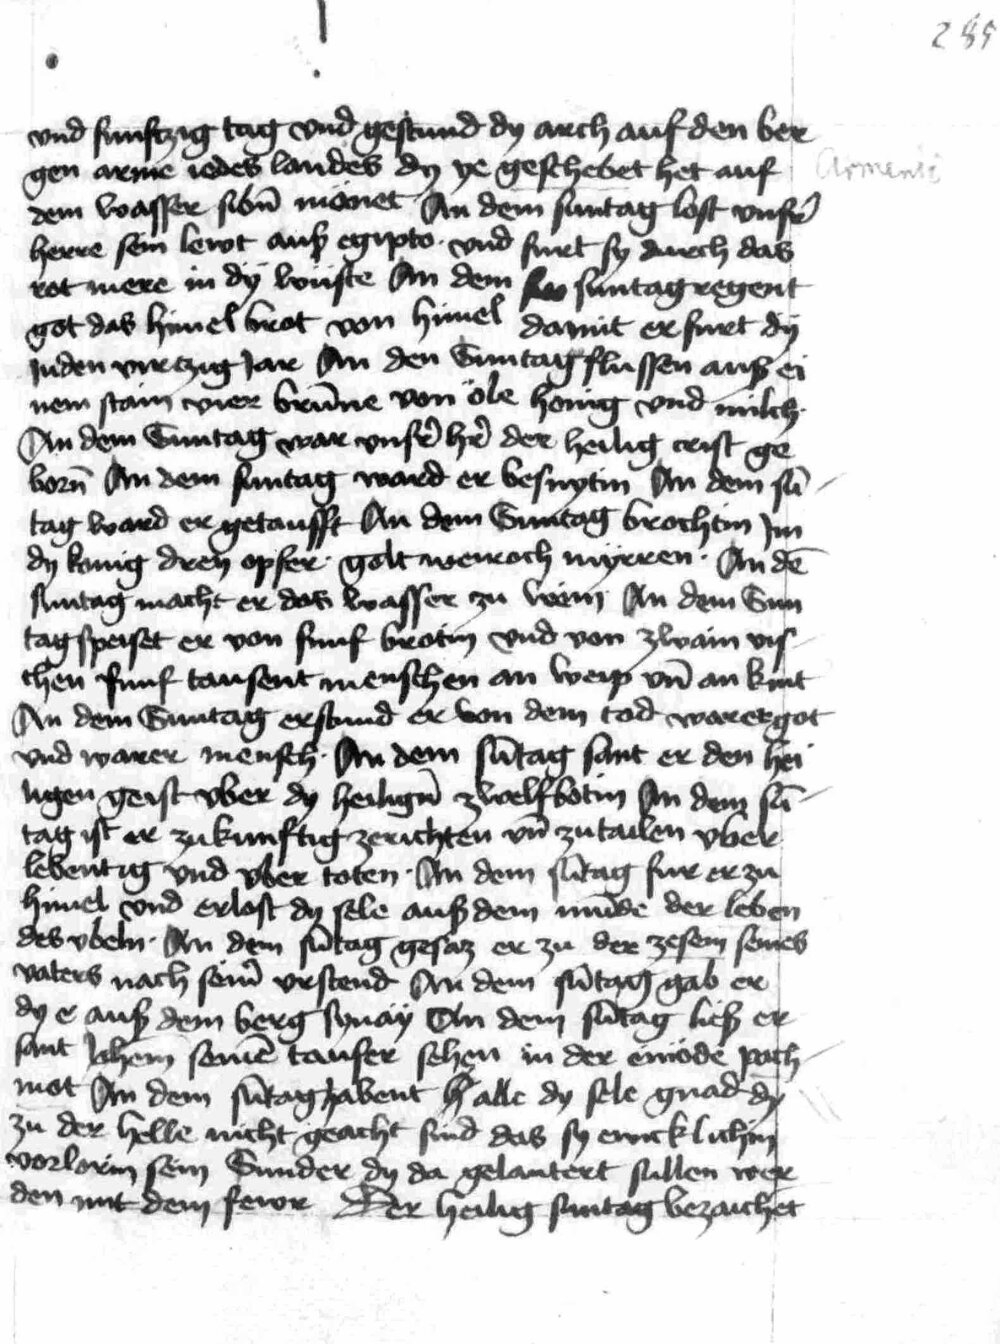 285
vnd funftzig tag vnd gestuend dy arch auf den ber
gen arme iedes landes dy ye geschebet het auf
Armenie
dem wasser sibn̄ mönet An dem suntag lost vnser̄
herre sein lewt auß egipto · vnd furt sy durch das
rot mere in dÿ wüiste An dem suntag regent
got das himel brot von himel damit er furt dÿ
Juden virtzig Jar An den Suntag flussen auß ei
nem stain vier brūne von öle hönig vnd milch ·
An dem Suntag war vnser̄ hr̄ der heilig crist ge
born̄ An dem suntag ward er besnytin An dem sū
tag ward er getaufft An dem Suntag brochtin Im
dy konig drey opfer · golt weiroch mÿrren · An dē
suntag macht er das wasser zu wein An dem Sun
tag speiset er von funf brotin vnd von zwain vis
chen funf tausent menschen an weip vn̄ an kint
An dem Suntag erstund er von dem tod warer got
vnd warer mensch · An dem sūtag sant er den hei
ligen geist vber dy heilign̄ zwelfbotin An dem sū
tag ist er zukunftig zerichten vn̄ zutailen vber
lebentig vnd vber toten · An dem sūtag fur er zu
himel vnd erlost dy sele auß dem mūde der leben
des vbeln · An dem sūtag gesaz er zu der zesem seines
vaters nach seim̄ vrstend An dem sūtag gab er
dy e auß dem berg synaÿ An dem sūtag ließ er
sant Johēm seinē taufer sehen in der einöde path
mot An dem sūtag habent alle dy sele gnad dy
zu der helle nicht geacht sind das sy ewicklichin
vorlorin sein Sunder dy da gelautert sullen wer
den mit dem fewr Der heilig suntag bezaichet